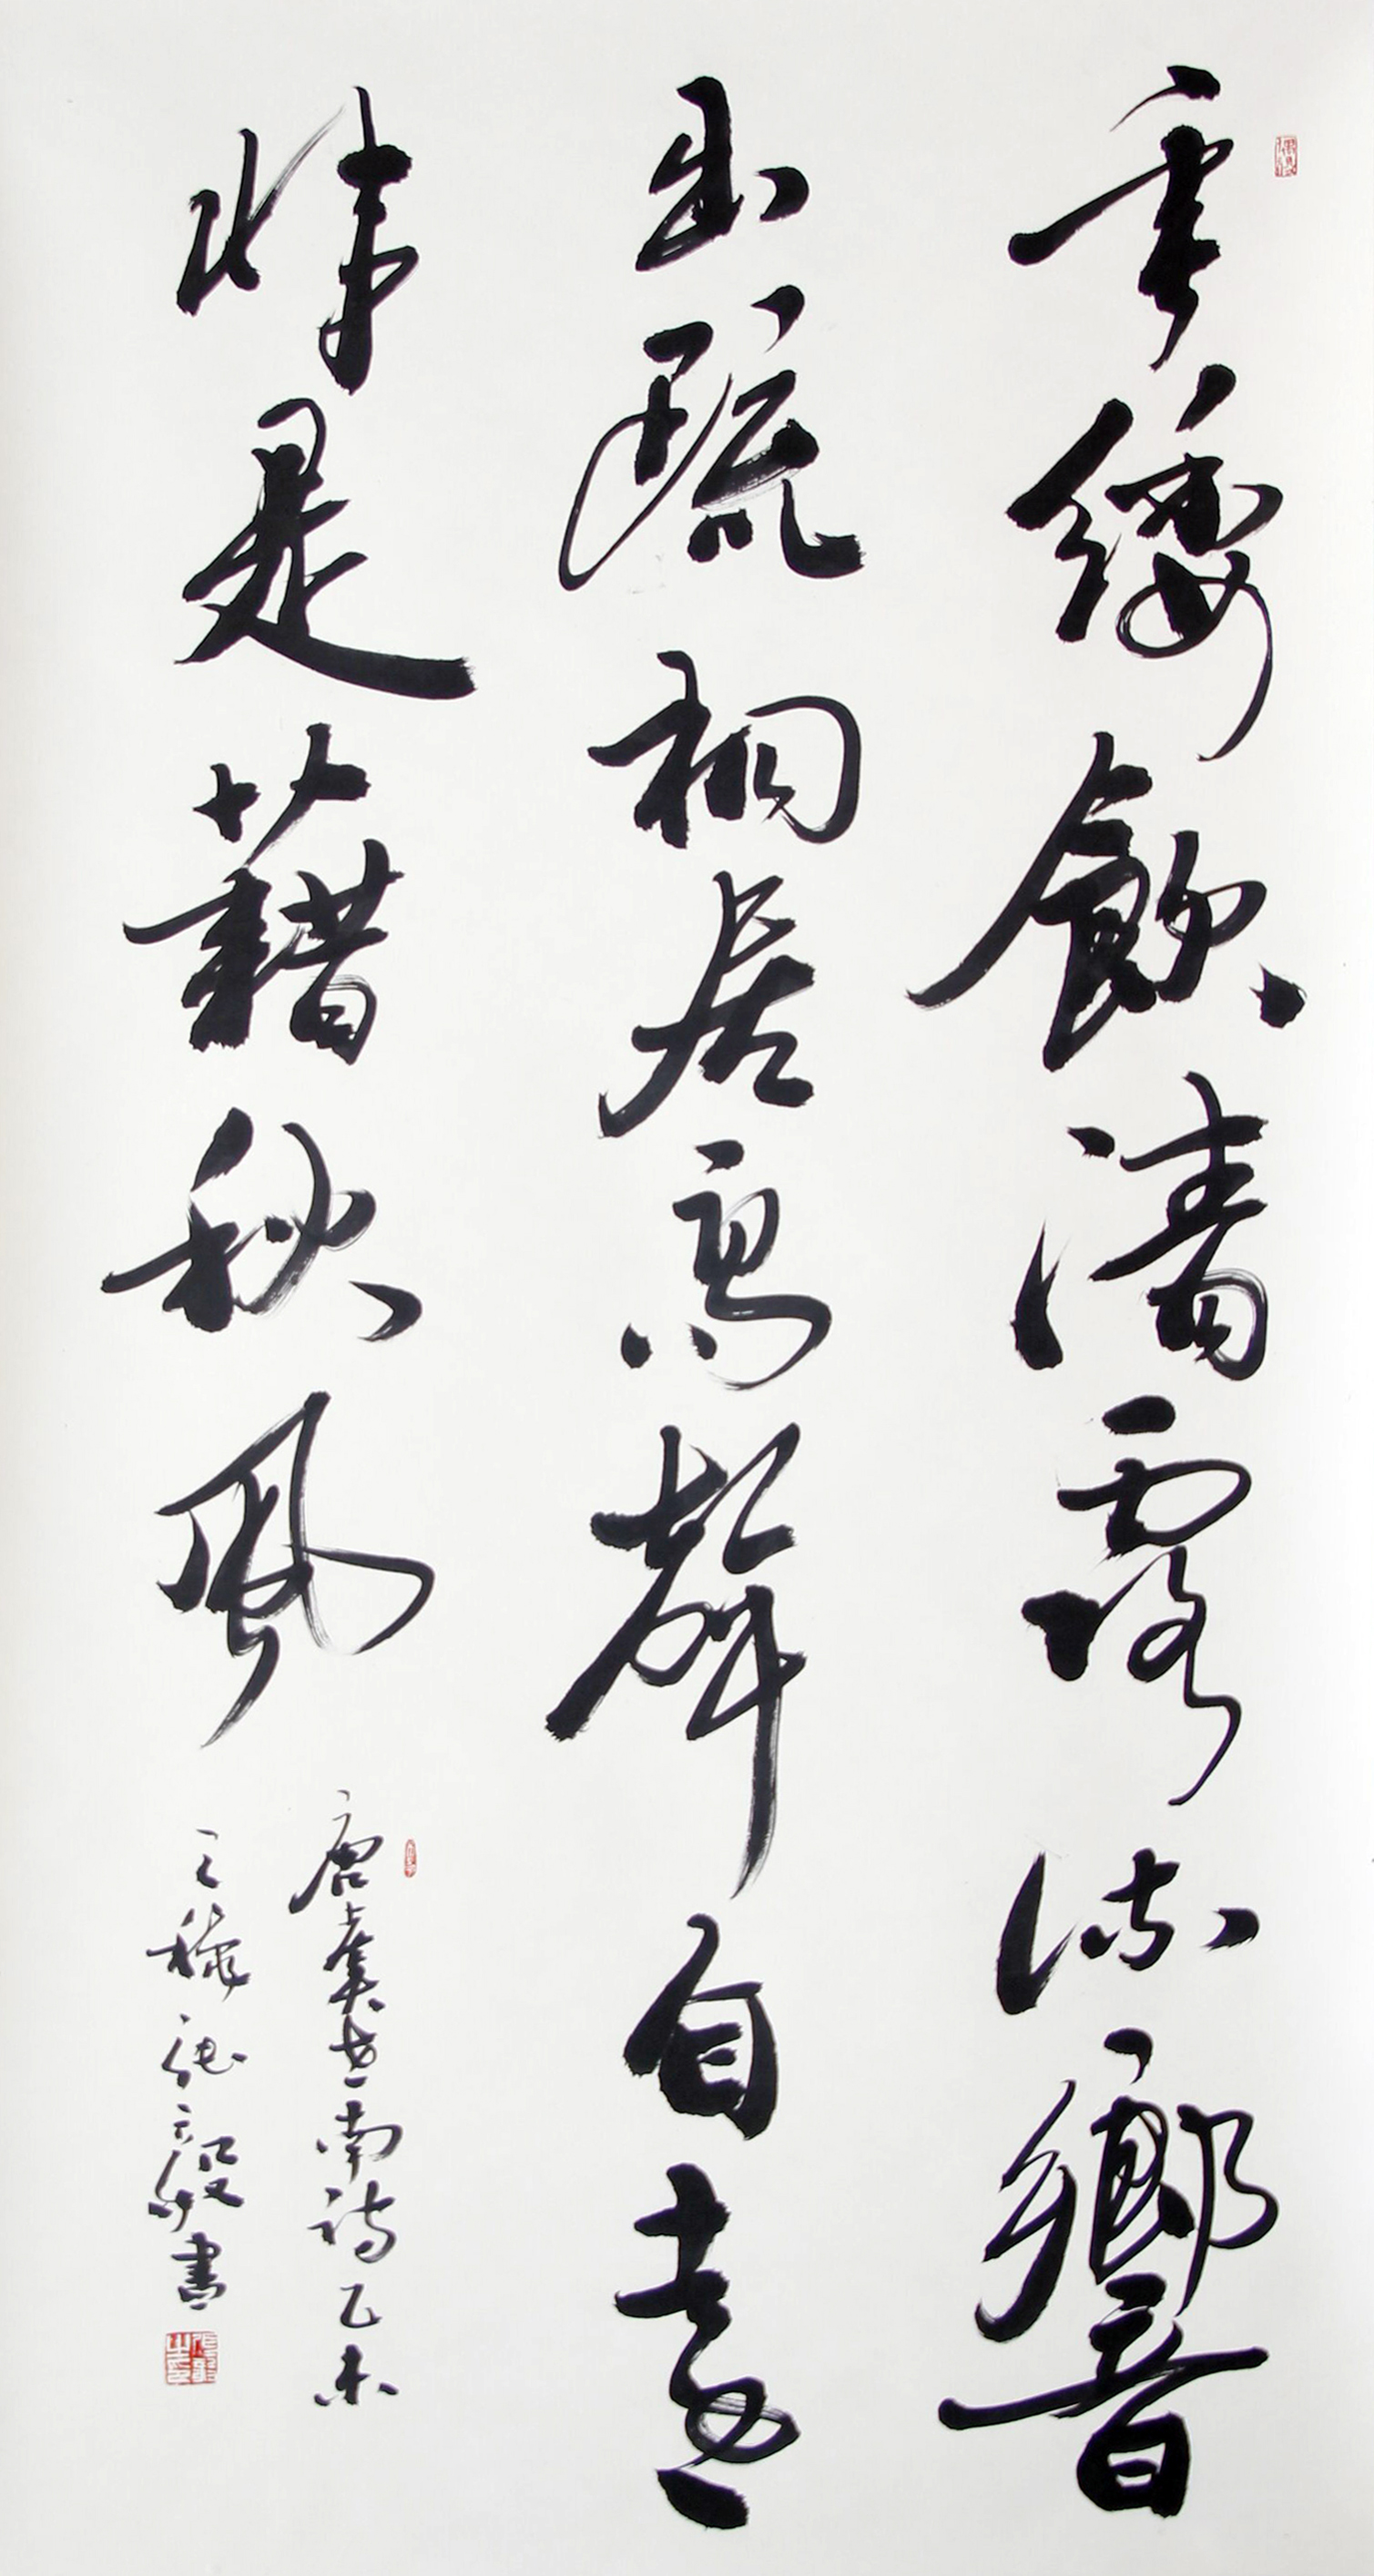 垂緌飲清露流響
出疏桐居高聲自遠
非是藉秋風
唐虞世南詩乙未
之秋張毅書